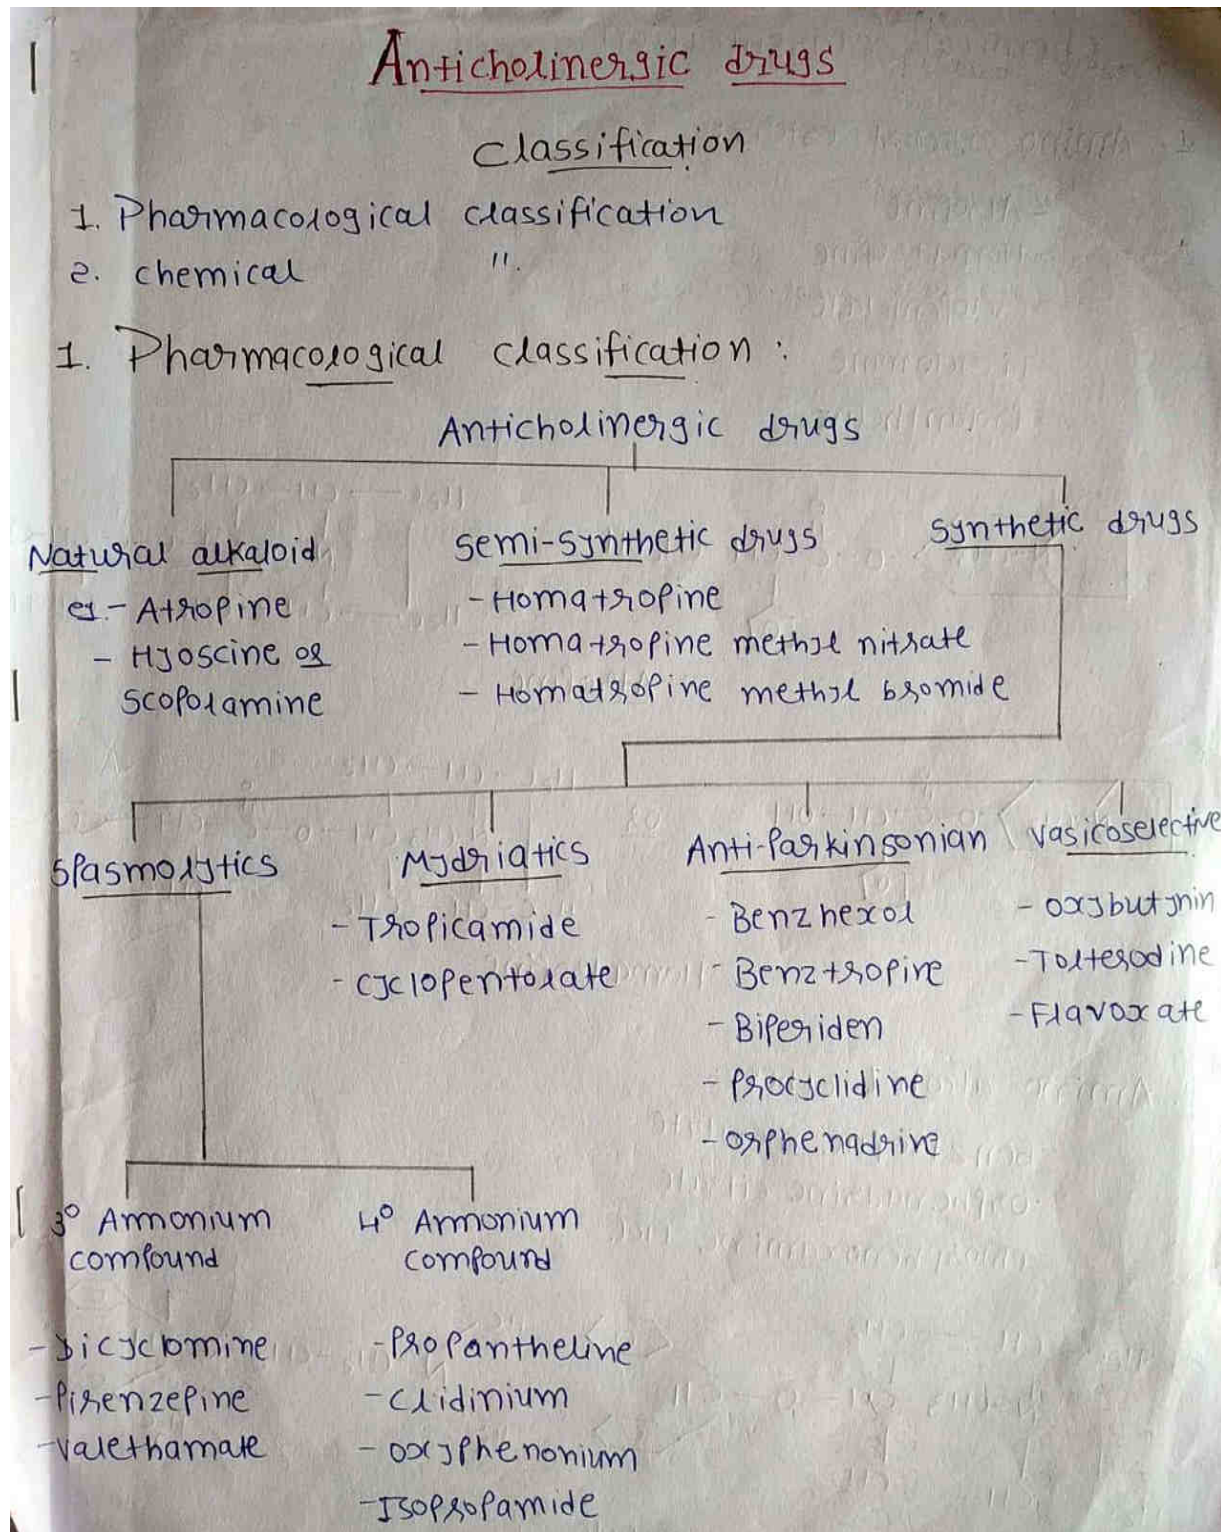 Anticholinergic drugs
Classification
1. Pharmacological classification
2. chemical ".
1. Pharmacological classification :
Anticholinergic drugs
Natural alkaloid
eg.- Atropine
- Hyoscine or
scopolamine
semi-synthetic drugs
- Homatropine
- Homatropine methyl nitrate
- Homatropine methyl bromide
synthetic drugs
Spasmolytics
Mydriatics
- Tropicamide
- cyclopentolate
Anti-Parkinsonian
- Benzhexol
- Benztropine
- Biperiden
- Procyclidine
- orphenadrine
vasicoselective
- oxybutynin
- Tolterodine
- Flavoxate
3° Ammonium
compound
- Dicyclomine
- Pirenzepine
- valethamate
4° Ammonium
compound
- Propantheline
- Clidinium
- oxyphenonium
- Isopropamide